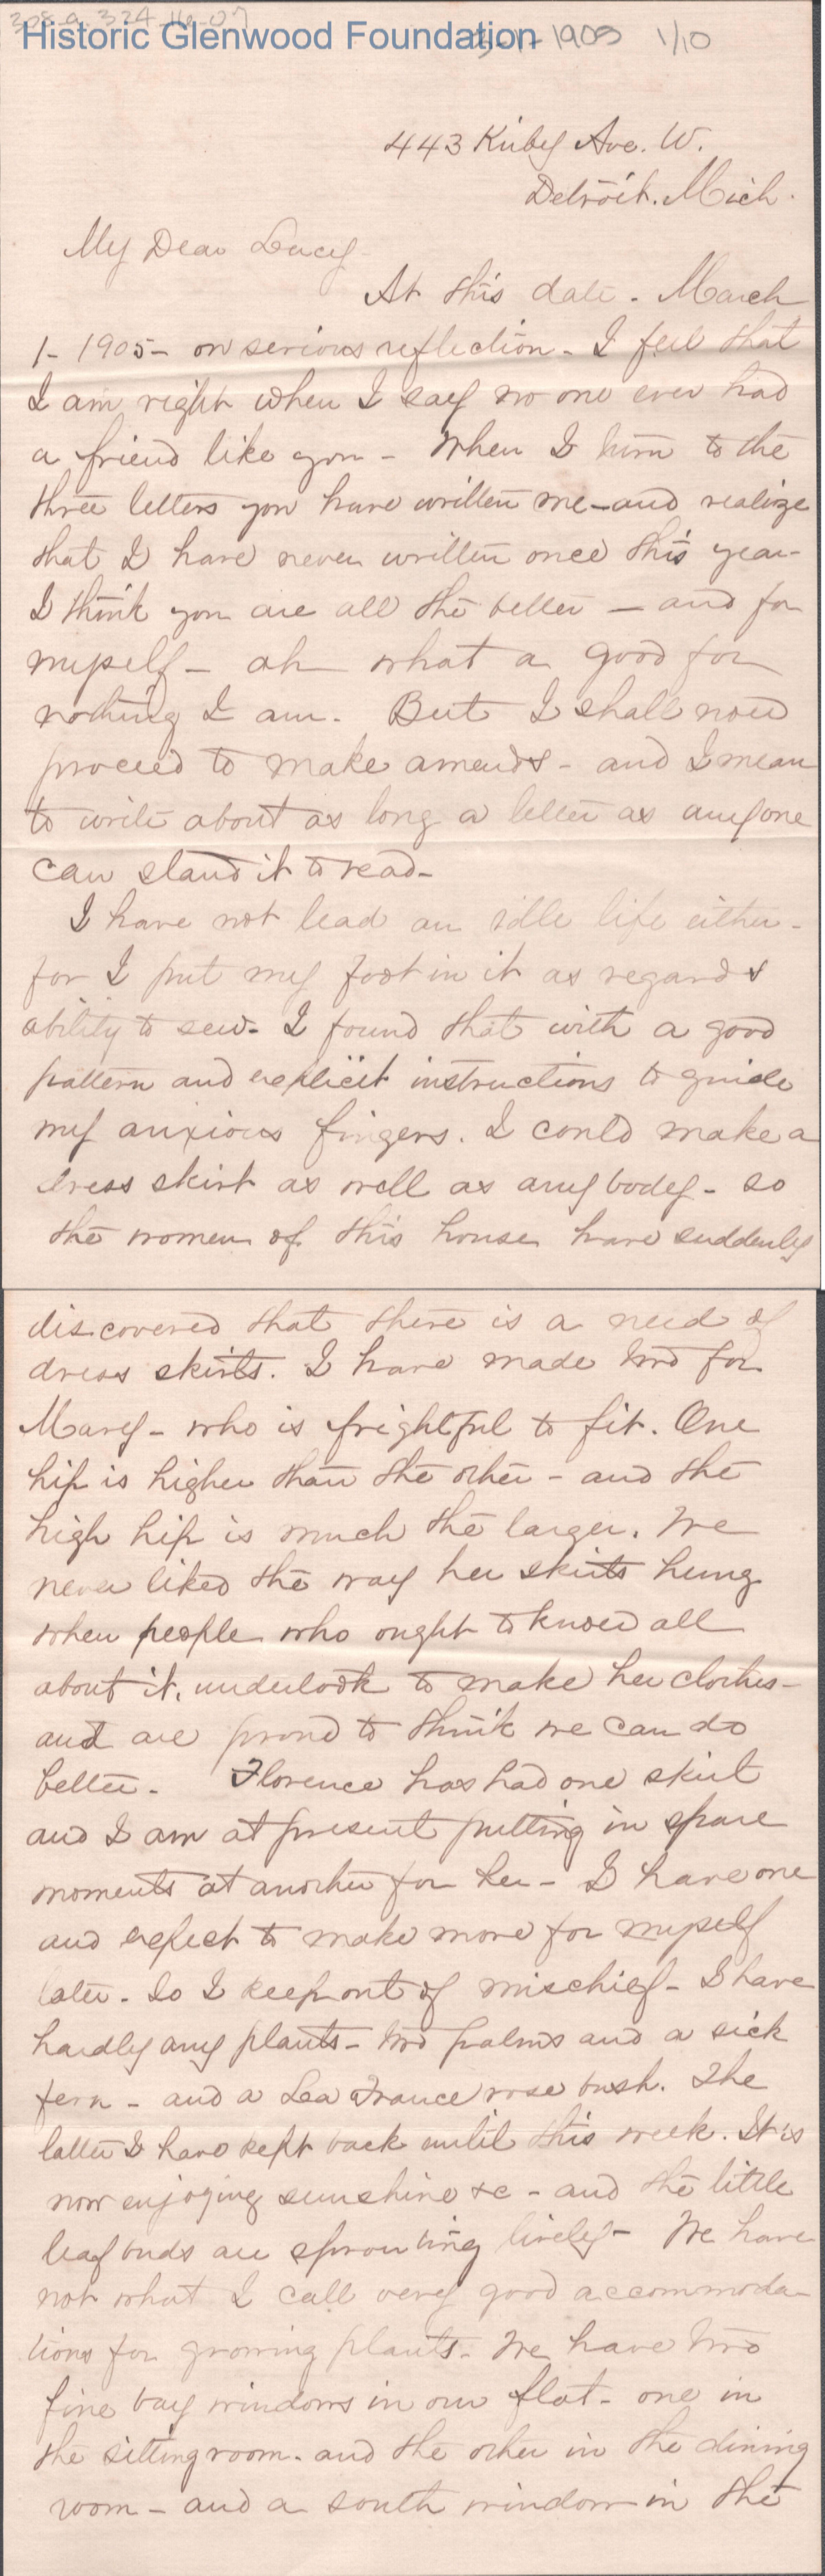 308-a-324-16-07
Historic Glenwood Foundation
3-1-1905 1/10
443 Kirby Ave. W.
Detroit. Mich.
My Dear Lucy-
At this date. March
1- 1905- on serious reflection- I feel that
I am right when I say no one ever had
a friend like you- When I turn to the
three letters you have written me-and realize
that I have never written once this year-
I think you are all the better - and for
myself- ah what a good for
nothing I am. But I shall now
proceed to make amends- and I mean
to write about as long a letter as anyone
can stand it to read-
I have not lead an idle life either-
for I put my foot in it as regards
ability to sew- I found that with a good
pattern and explicit instructions to guide
my anxious fingers. I could make a
dress skirt as well as any body- so
the women of this house have suddenly
discovered that there is a need of
dress skirts. I have made two for
Mary- who is frightful to fit. One
hip is higher than the other- and the
high hip is much the larger. We
never liked the way her skirts hung
when people who ought to know all
about it, undertook to make her clothes-
and are proud to think we can do
better- Florence has had one skirt
and I am at present putting in spare
moments at another for her- I have one
and expect to make more for myself
later- So I keep out of mischief- I have
hardly any plants- two palms and a sick
fern- and a Lea France rose bush. The
latter I have kept back until this week. It is
now enjoying sunshine &c- and the little
leaf buds are sprouting lively- We have
not what I call very good accommoda-
tions for growing plants- We have two
fine bay windows in our flat- one in
the sitting room- and the other in the dining
room- and a south window in the